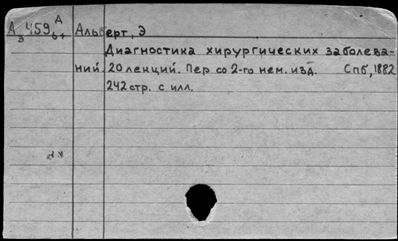 А 459 А Альберт, Э
Диагностика хирургических заболева-
ний. 20 лекций. Пер со 2-го нем. изд. Спб, 1882
242 стр. с илл.